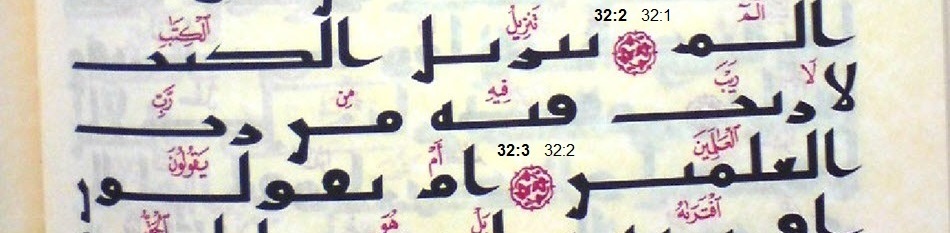 الٓمٓ 32:1 32:2 تَنزِيلُ ٱلْكِتَٰبِ
الم تنزيل الكتب
لَا رَيْبَ فِيهِ مِن رَّبِّ
لا ريب فيه من رب
ٱلْعَٰلَمِينَ 32:2 32:3 أَمْ يَقُولُونَ
العلمين ام يقولون
ٱفْتَرَىٰهُ بَلْ هُوَ ٱلْحَقُّ